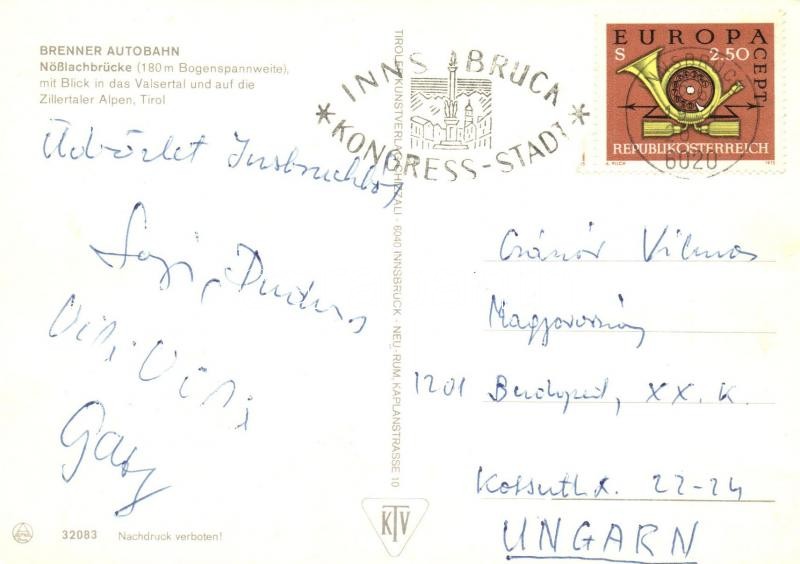 BRENNER AUTOBAHN
Nößlachbrücke (180 m Bogenspannweite),
mit Blick in das Valsertal und auf die
Zillertaler Alpen, Tirol
Üdvözlet Innsbruckból
Vili
Magyarország
1201 Budapest, XX. K.
Kossuth L. 22-24
UNGARN
Vilmos
TIROLER KUNSTVERLAG CHIZZALI · 6040 INNSBRUCK · NEU-RUM, KAPLANSTRASSE 10
INNSBRUCK
* KONGRESS-STADT *
EUROPA
CEPT
S 2.50
REPUBLIK ÖSTERREICH
1973
INNSBRUCK
6020
KTV
32083 Nachdruck verboten!